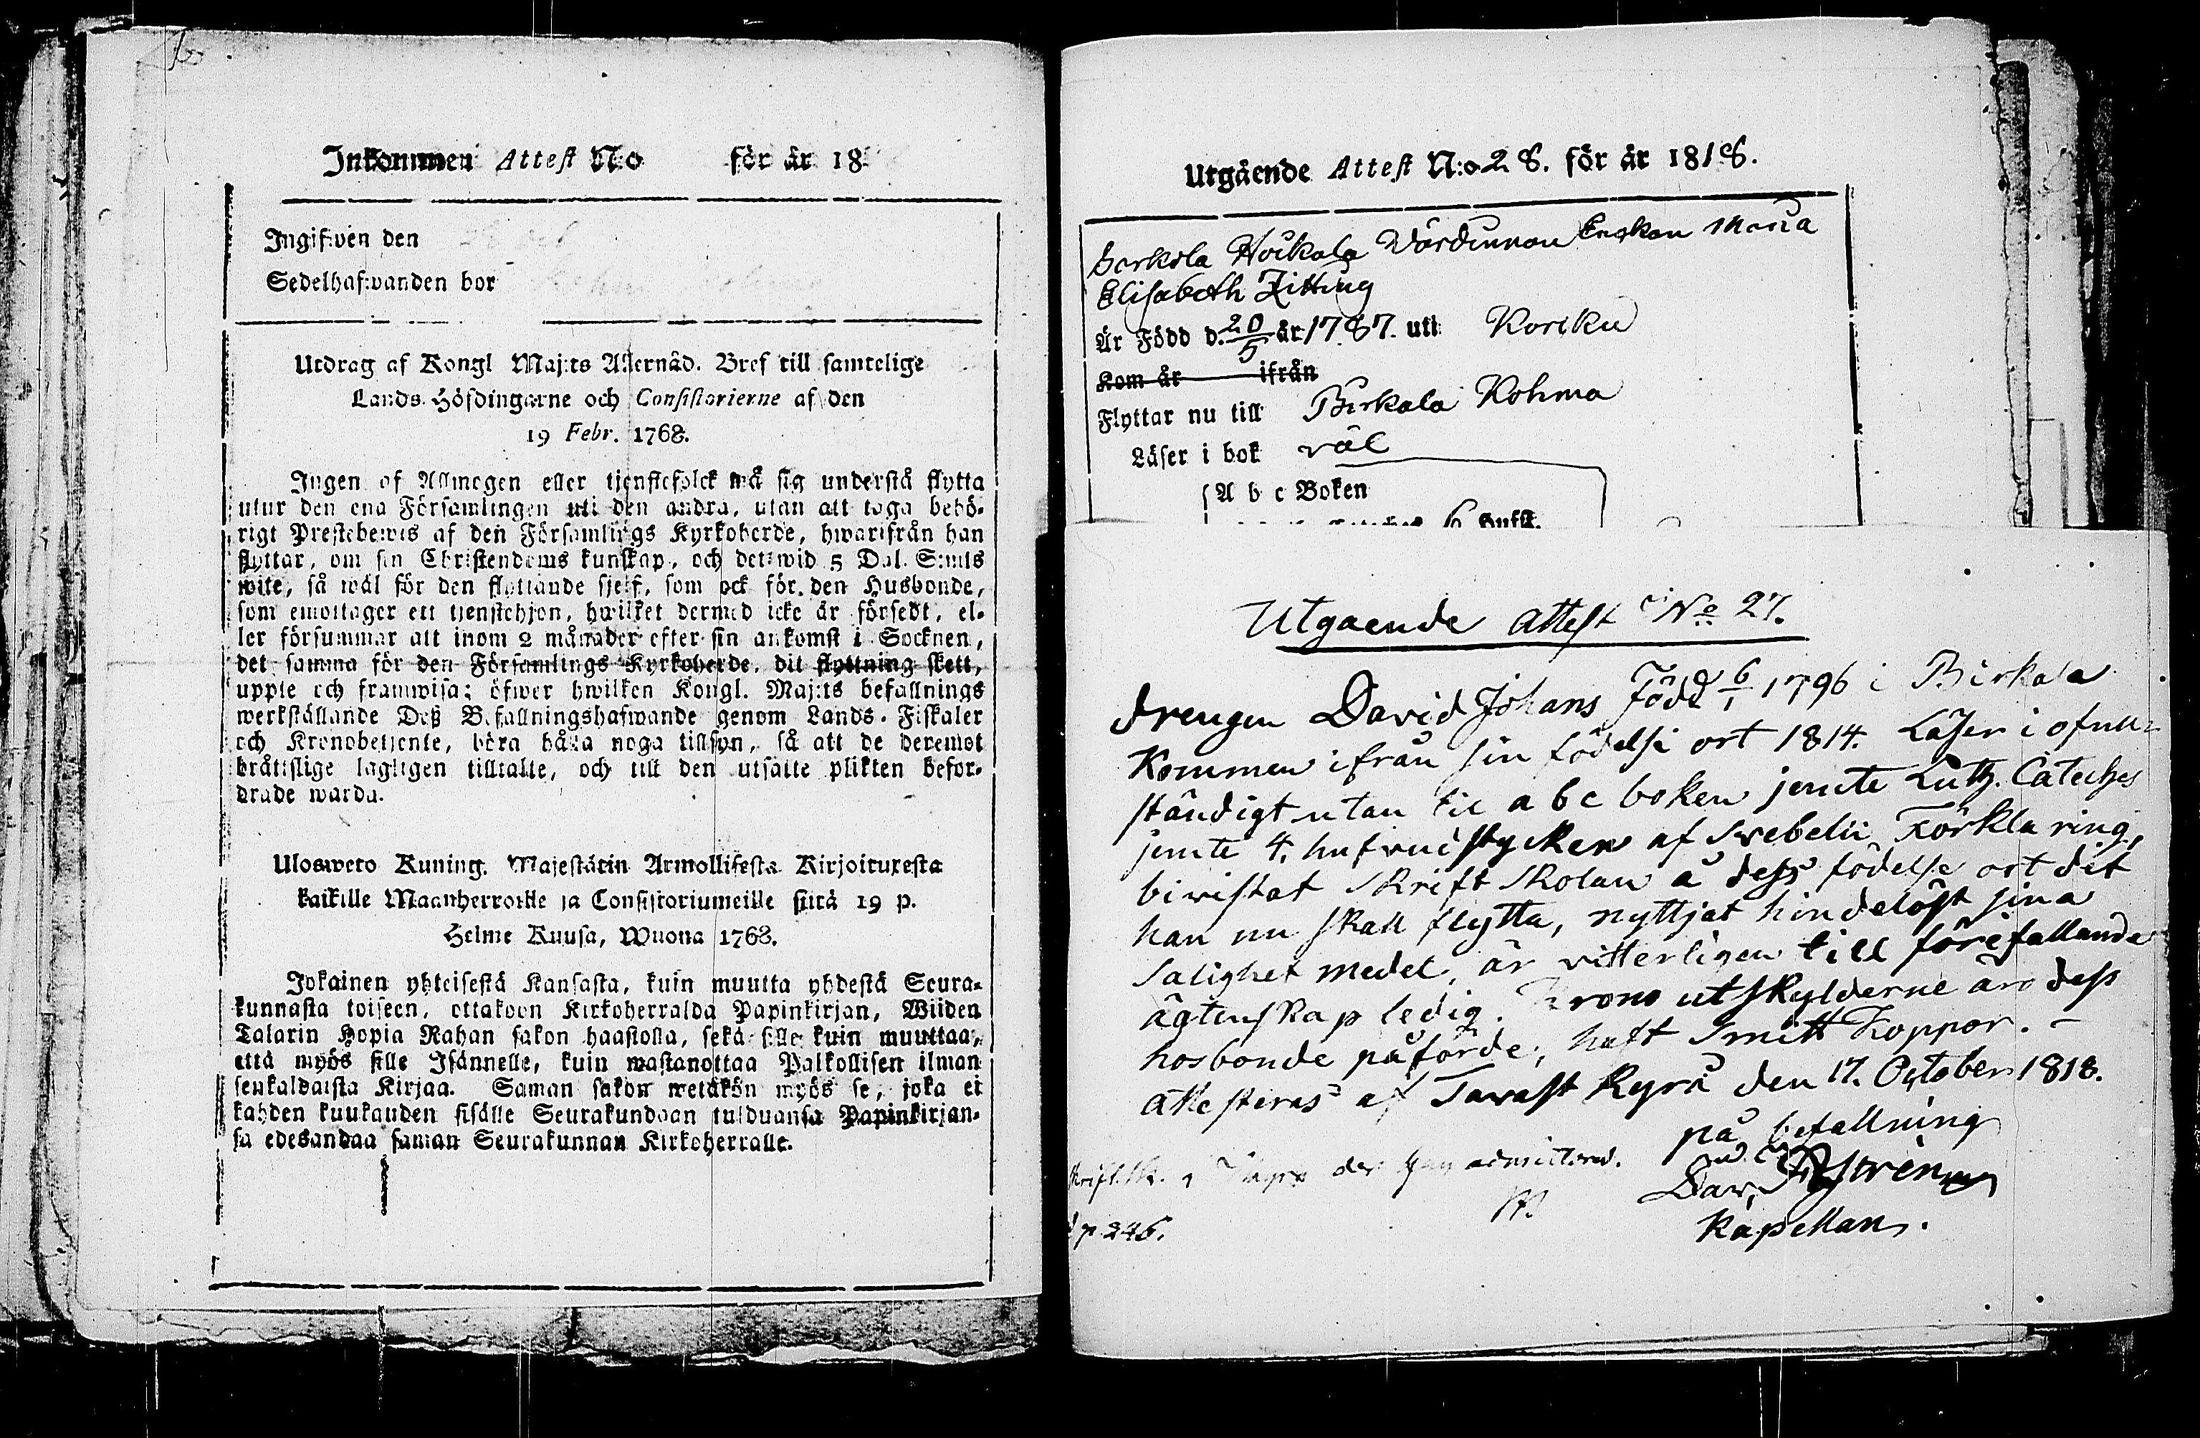 Inkommen Attest N:o för år 18
Ingifwen den
Sedelhafwanden bor
Utdrag af Kongl Maj:ts Allernåd. Bref till samtelige
Lands-Höfdingarne och Consistorierne af den
19 Febr. 1768.
Ingen af Allmogen eller tjenstefolck må sig understå flytta
utur den ena Församlingen uti den andra, utan att taga behö-
rigt Prestebewis af den Församlings Kyrkoherde, hwarifrån han
flyttar, om sin Christendoms kunskap, och det: wid 5 Dal. S:mts
wite, så wäl för den flyttande sjelf, som ock för den Husbonde,
som emottager ett tjenstehjon, hwilket dermed icke är försedt, el-
ler försummar att inom 2 månader efter sin ankomst i Socknen,
det samma för den Församlings Kyrkoherde, dit flyttning skett,
uppte och framwisa; öfwer hwilken Kongl. Maj:ts befallnings
werkställande Deß Befallningshafwande genom Lands-Fiskaler
och Kronobetjente, böra hålla noga tillsyn, så att de deremot
bråttslige lagligen tilltalte, och till den utsatte plikten befor-
drade warda.
Ulosweto Kuning. Majestätin Armollisesta Kirjoituxesta
kaikille Maanherroille ja Consistoriumeille siitä 19 p.
Helme Kuusa, Wuona 1768.
Jokainen yhteisestä Kansasta, kuin muutta yhdestä Seura-
kunnasta toiseen, ottakoon Kirkoherralda Papinkirjan, Wiiden
Talarin Hopia Rahan sakon haastolla, sekä sille kuin muuttaa,
että myös sille Isännelle, kuin wastanottaa Palkollisen ilman
senkaldaista Kirjaa. Saman sakon wetäkön myös se, joka ei
kahden kuukauden sisälle Seurakundaan tulduansa Papinkirjan-
sa edesandaa saman Seurakunnan Kirkoherralle.
Utgående Attest N:o 28. för år 1818.
Höikala Värdinnan Enkan Maria
Elisabeth Zitting
Är Född d. 20/5 år 1787. uti
Kom år ifrån
Flyttar nu till Birkala Kohma
Läser i bok väl
A b c Boken
6 Hufst.
Utgående attest No 27.
Drengen David Johans Född 6/1 1796 i Birkala
Kommen ifrån sin födelse ort 1814. Läser i ofull-
ständigt utan til a b c boken jemte Luth. Cateches
jemte 4. hufvudstycken af Svebelii Förklaring,
bivistat Skriftskolan å dess födelse ort dit
han nu skall flytta, nyttjat hindelöst sina
salighet medel, är vitterligen till förefallande
ägtenskap ledig. Krono utskylderne äro dess
hosbonde påförde, haft Smitt Koppor. -
Attesteras af Tavast Kyrö den 17. October 1818.
på befallning
Dav.
Kapellan.
der admitterad.
p 246.